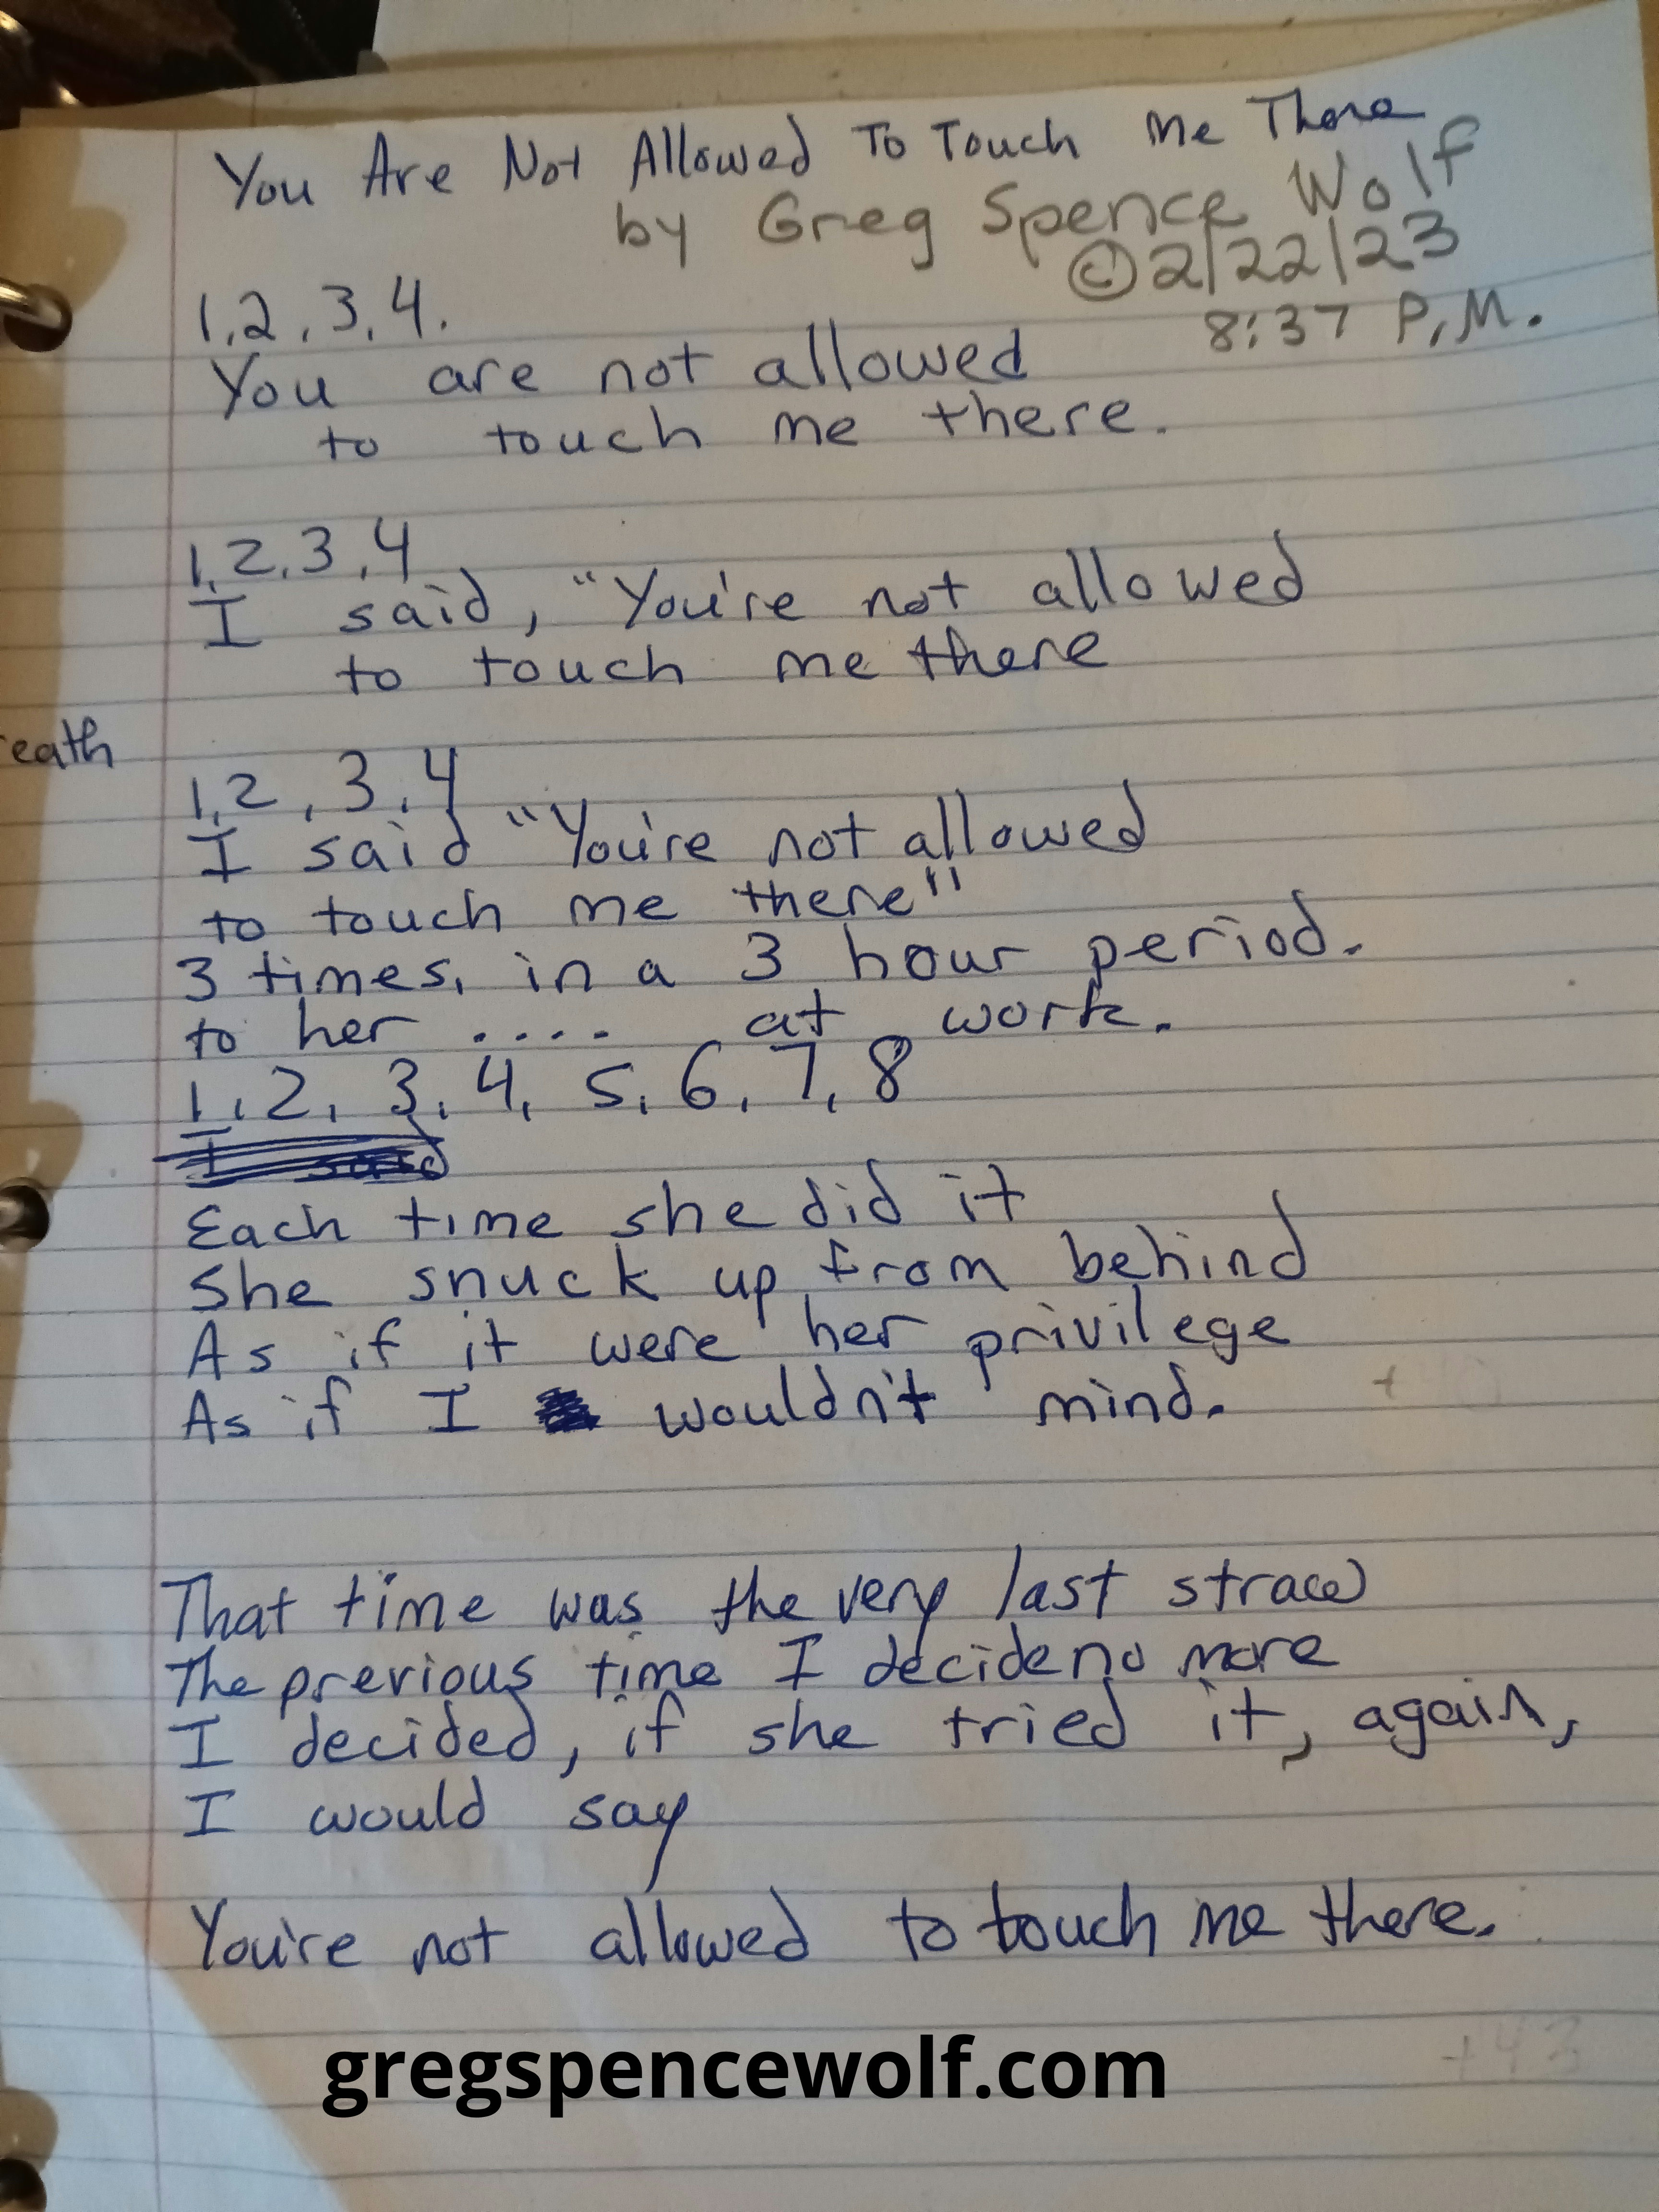 You Are Not Allowed To Touch Me There
by Greg Spence Wolf
©2/22/23
8:37 P.M.
1,2,3,4.
You are not allowed
to touch me there.
1,2,3,4
I said, "You're not allowed
to touch me there
eath
1,2,3,4
I said "You're not allowed
to touch me there"
3 times, in a 3 hour period.
to her .... at work.
1,2,3,4,5,6,7,8
I said
Each time she did it
She snuck up from behind
As if it were her privilege
As if I wouldn't mind.
That time was the very last straw
The previous time I decide no more
I decided, if she tried it, again,
I would say
You're not allowed to touch me there.
gregspencewolf.com
+43